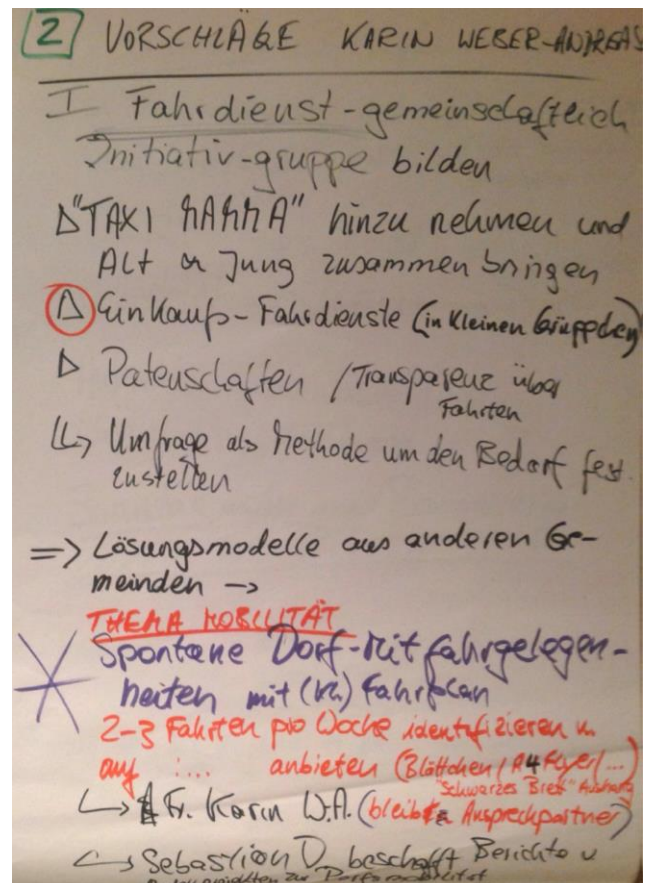 2 VORSCHLÄGE KARIN WEBER-ANDREAS
I Fahrdienst-gemeinschaftlich
Initiativ-gruppe bilden
"TAXI MAMMA" hinzu nehmen und
Alt & Jung zusammen bringen
Einkaufs-Fahrdienste (in kleinen Grüppchen)
Patenschaften / Transparenz über
Fahrten
Umfrage als Methode um den Bedarf fest
zustellen
=> Lösungsmodelle aus anderen Ge-
meinden ->
THEMA MOBILITÄT
Spontane Dorf-Mitfahrgelegen-
heiten mit Fahrplan
2-3 Fahrten pro Woche identifizieren u.
auf :... anbieten (Blättchen / A4 Flyer / ...)
"Schwarzes Brett" Aushang
Fr. Karin W.A. (bleibt Ansprechpartner)
Sebastian D. beschafft Berichte u
zur Dorfmobilität